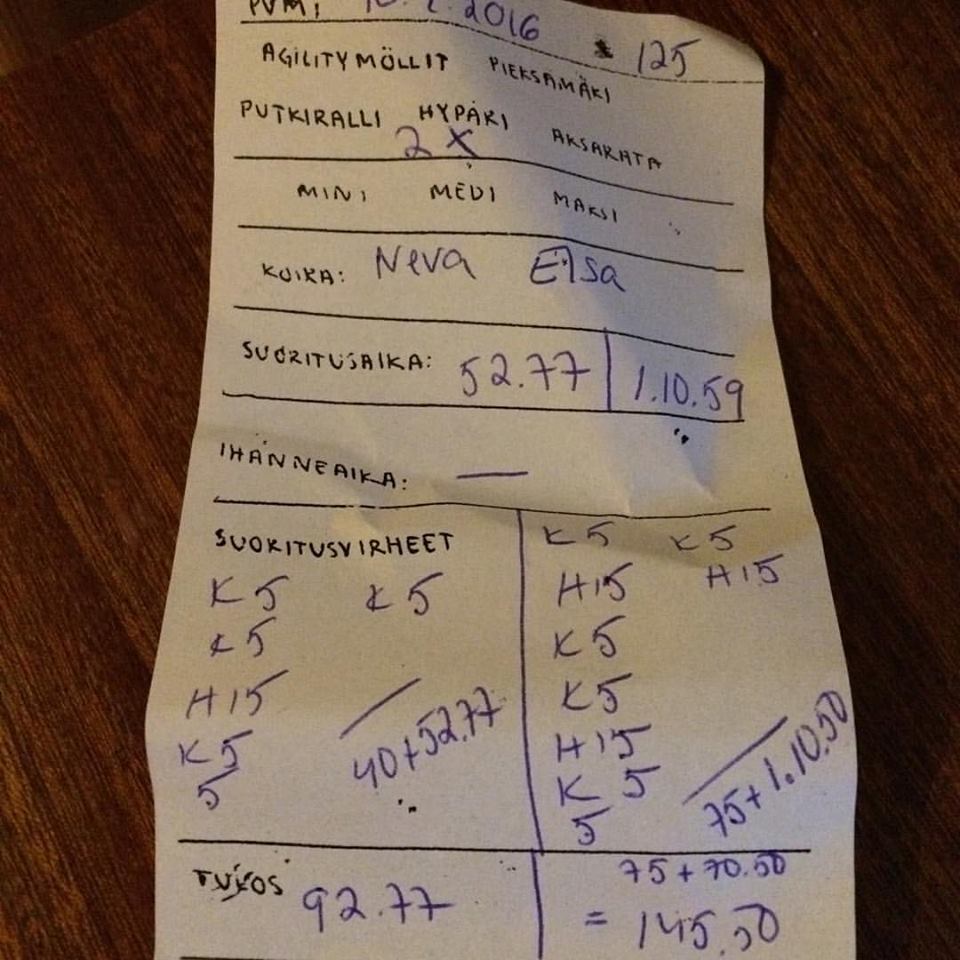 PVM: 2016 125
AGILITYMÖLLIT PIEKSÄMÄKI
PUTKIRALLI HYPÄRI AKSARATA
2 X
MINI MEDI MAKSI
KOIRA: Neva Elsa
SUORITUSAIKA: 52.77 1.10.59
IHANNEAIKA: —
SUORITUSVIRHEET K5 K5
K5 K5 H15 H15
K5 K5
H15 K5
K5 H15
5 K 5
40+52.77 5 75+1.10.50
TULOS 92.77 75+70.50
= 145,50